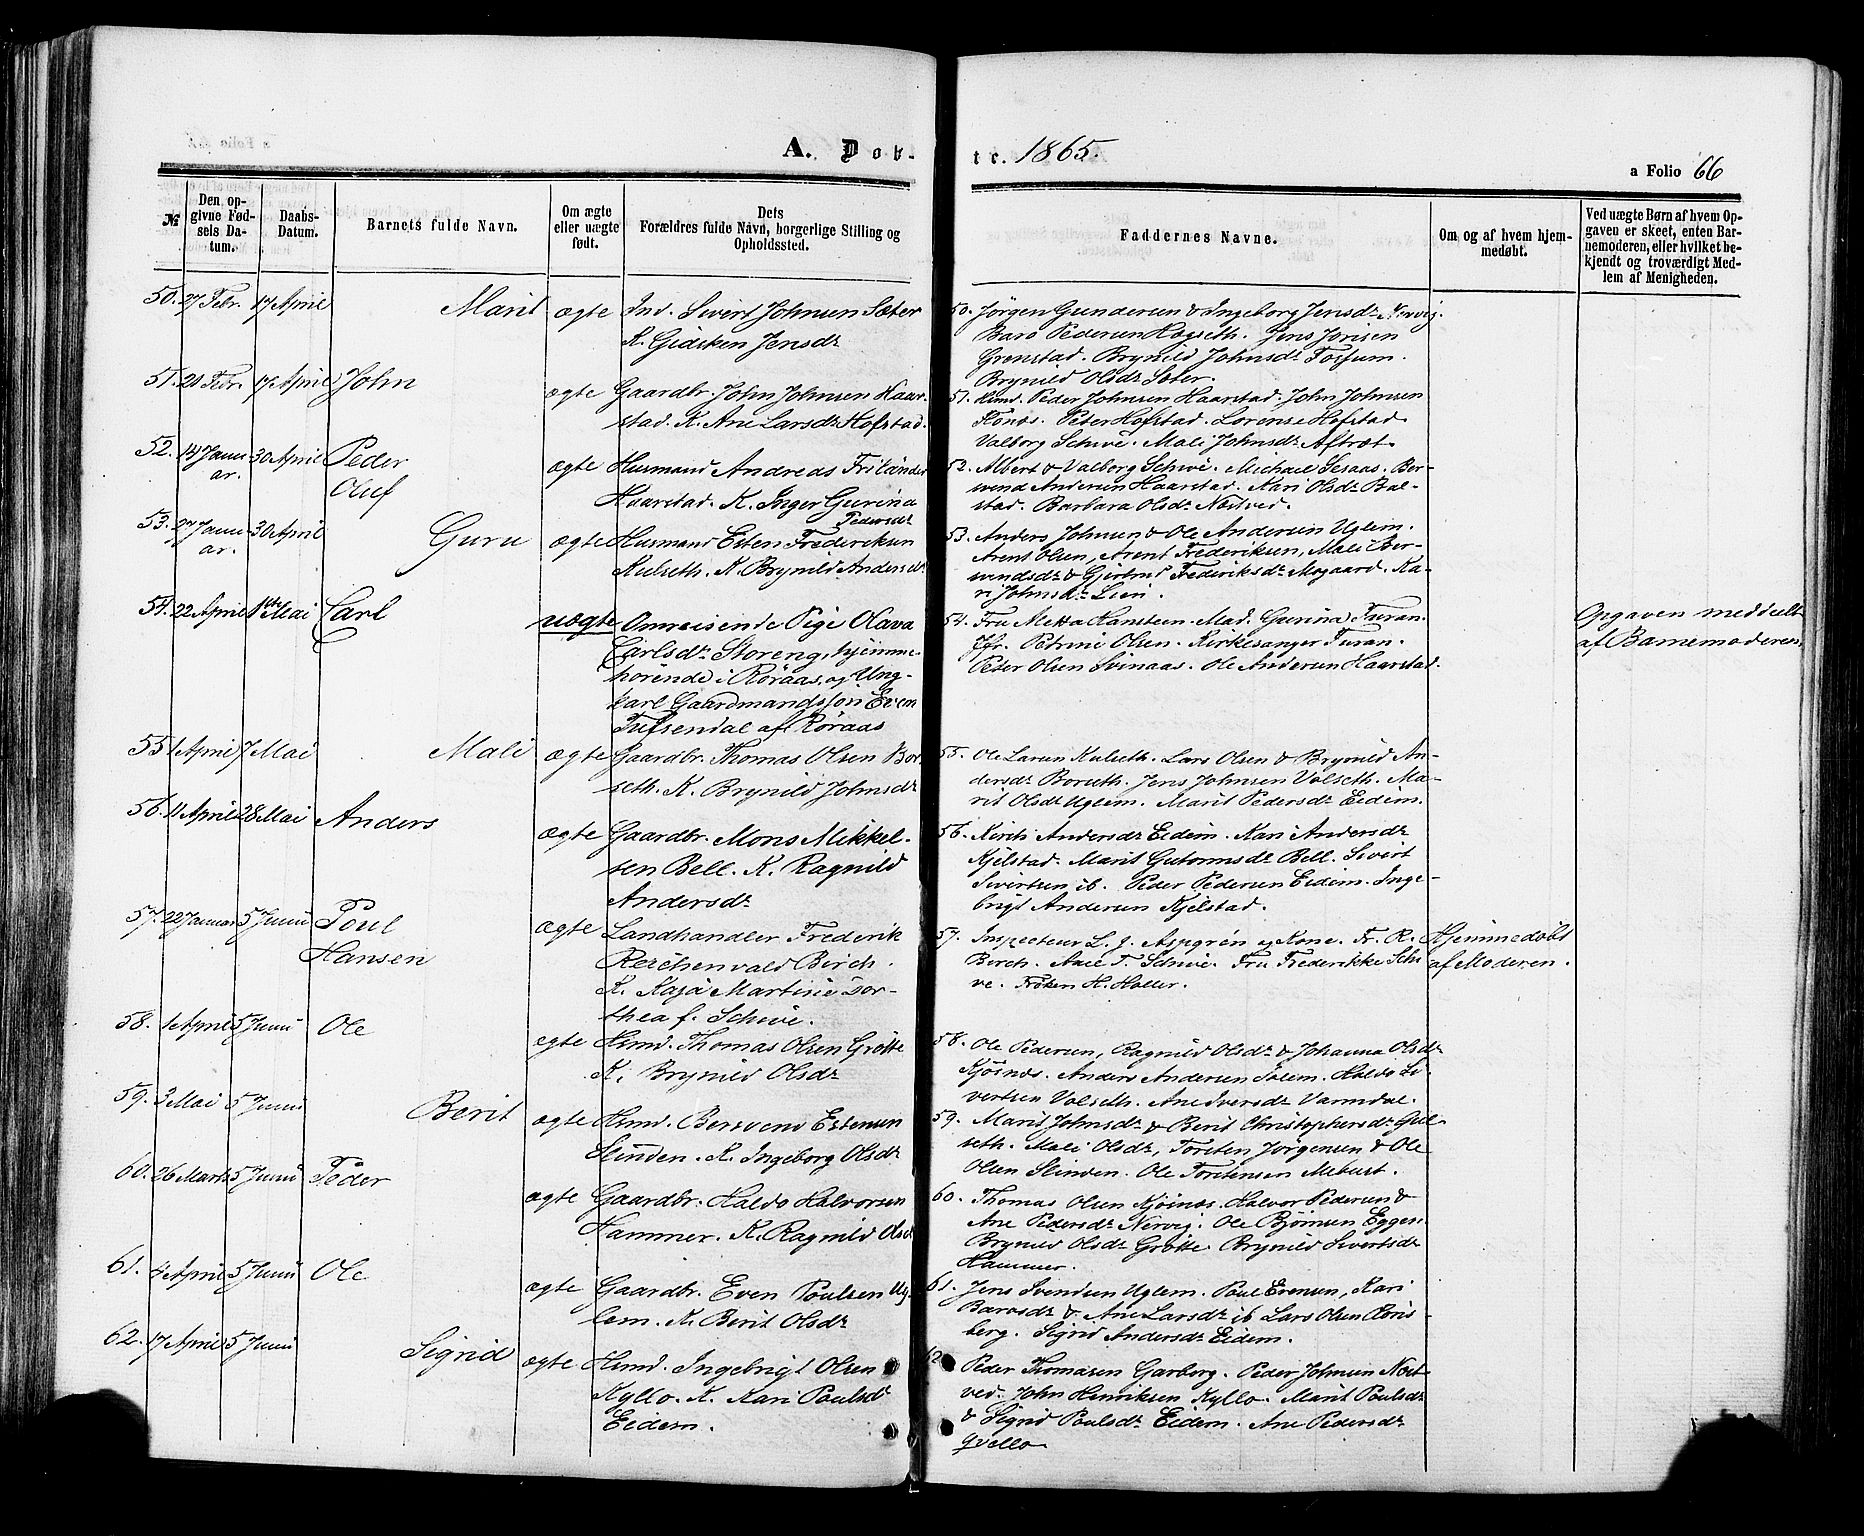 A. Døb-
te. 1865.
a Folio 66
№
Den op-
givne Fød-
sels Da-
tum.
Daabs-
Datum.
Barnets fulde Navn.
Om ægte
eller uægte
født.
Dets
Forældres fulde Navn, borgerlige Stilling og
Opholdssted.
Faddernes Navne.
Om og af hvem hjem-
medøbt.
Ved uægte Børn af hvem Op-
gaven er skeet, enten Bar-
nemoderen, eller hvilket be-
kjendt og troværdigt Med-
lem af Menigheden.
50. 27 Febr. 17 April Marit ægte Ind. Sivert Johnsen Sæter
K. Gidsken Jensdr
50. Jörgen Gundersen & Ingeborg Jensdr Nervig.
Baro Pedersen Hogseth. Jens Jonsen
Grønstad. Brynild Johnsdr Fossum.
Brynild Olsdr Sæter.
51. 21 Febr. 17 April John ægte Gaardbr. John Johnsen Haar-
stad. K. Ane Larsdr Hofstad.
51. Husmd. Peder Johnsen Haarstad. John Johnsen
Flönæs. Peter Hofstad. Lorense Hofstad
Valborg Schive. Mali Johnsdr Aftræt.
52. 14 Janu- 30 April Peder ægte Husmand Andreas Friländer
ar. Oluf Haarstad. K. Inger Gurina
Pedersdr
52. Albert & Valborg Schive. Michael Sesaas. Ber-
svend Andersen Haarstad. Kari Olsdr Bal-
stad. Barbara Olsdr Næstved.
53. 27 Janu- 30 April Guru ægte Husmand Esten Frederiksen
ar. Kulseth. K. Brynild Andersdr
53. Anders Johnsen & Ole Andersen Uglem.
Arent Olsen, Arent Frederiksen, Mali Ber-
svendsdr & Gjertrud Frederiksdr Mogaard. Ka-
ri Johnsdr Lien.
54. 22 April 1ste Mai Carl uægte Omreisende Pige Olava
Carlsdr Storeng, hjemme-
hörende i Röraas, og Ung-
karl Gaardmandssön Even
Tufsendal af Röraas
54. Fru Metta Hansteen. Mad. Gurina Turan.
Jfr. Petrine Olsen. Kirkesanger Turan.
Peter Olsen Svinaas. Ole Andersen Haarstad.
Opgaven meddeelt
af Barnemoderen.
55. 1 April 7 Mai Mali ægte Gaardbr. Thomas Olsen Bor-
seth. K. Brynild Johnsdr
55. Ole Larsen Kulseth. Lars Olsen & Brynild An-
dersdr Borseth. Jens Johnsen Volseth. Ma-
rit Olsdr Uglem. Marit Pedersdr Eidem.
56. 11 April 28 Mai Anders ægte Gaardbr. Mons Mikkel-
sen Bell. K. Ragnild
Andersdr
56. Kirsti Andersdr Eidem. Kari Andersdr
Kjelstad. Marit Gutormsdr Bell. Sivert
Sivertsen ib. Peder Pedersen Eidem. Inge-
brigt Andersen Kjelstad.
57. 22 Januar 5 Juni Poul ægte Landhandler Frederik
Hansen Birch.
K. Kaja Martine Dor-
thea f. Schive.
57. Inspecteur L. J. Aspgrén og Kone. Fr. R.
Birch. T. Schive. Fru Frederikke Schi-
ve. Fröken H. Holler.
Hjemmedöbt
af Moderen.
58. 1 April 5 Juni Ole egte Hsmd. Thomas Olsen Grötte
K. Brynild Olsdr
58. Ole Pedersen, Ragnild Olsdr & Johanna Olsdr
Kjösnæs. Anders Andersen Solem. Haldo Si-
vertsen Volseth. Ane Iversdr Varmdal.
59. 3 Mai 5 Juni Berit ægte Hsmd. Bersvend Estensen
Slinden. K. Ingeborg Olsdr
59. Marit Johnsdr & Berit Christophersdr Gul-
seth. Mali Olsdr, Torsten Jörgensen & Ole
Olsen Slinden. Ole Torstensen Mebust.
60. 26 Marts 5 Juni Peder ægte Gaardbr. Haldo Halvorsen
Hammer. K. Ragnild Olsd
60. Thomas Olsen Kjösnæs. Halvor Pedersen &
Ane Pedersdr Nervig. Ole Björnsen Eggen.
Brynild Olsdr Grötte. Brynild Sivertsdr
Hammer.
61. 4 April 5 Juni Ole ægte Gaardbr. Even Poulsen Ug-
lem. K. Berit Olsdr
61. Jens Svendsen Uglem. Poul Evensen, Kari
Barosdr & Ane Larsdr ib Lars Olsen Evris-
berg. Sigrid Andersdr Eidem.
62. 17 April 5 Juni Sigrid ægte Hsmd. Ingebrigt Olsen
Kyllo. K. Kari Poulsdr
Eidem.
62. Peder Thomasen Garberg. Peder Johnsen Næst-
ved. John Henriksen Kyllo. Marit Poulsdr
& Sigrid Poulsdr Eidem. Ane Pedersdr
Qvello